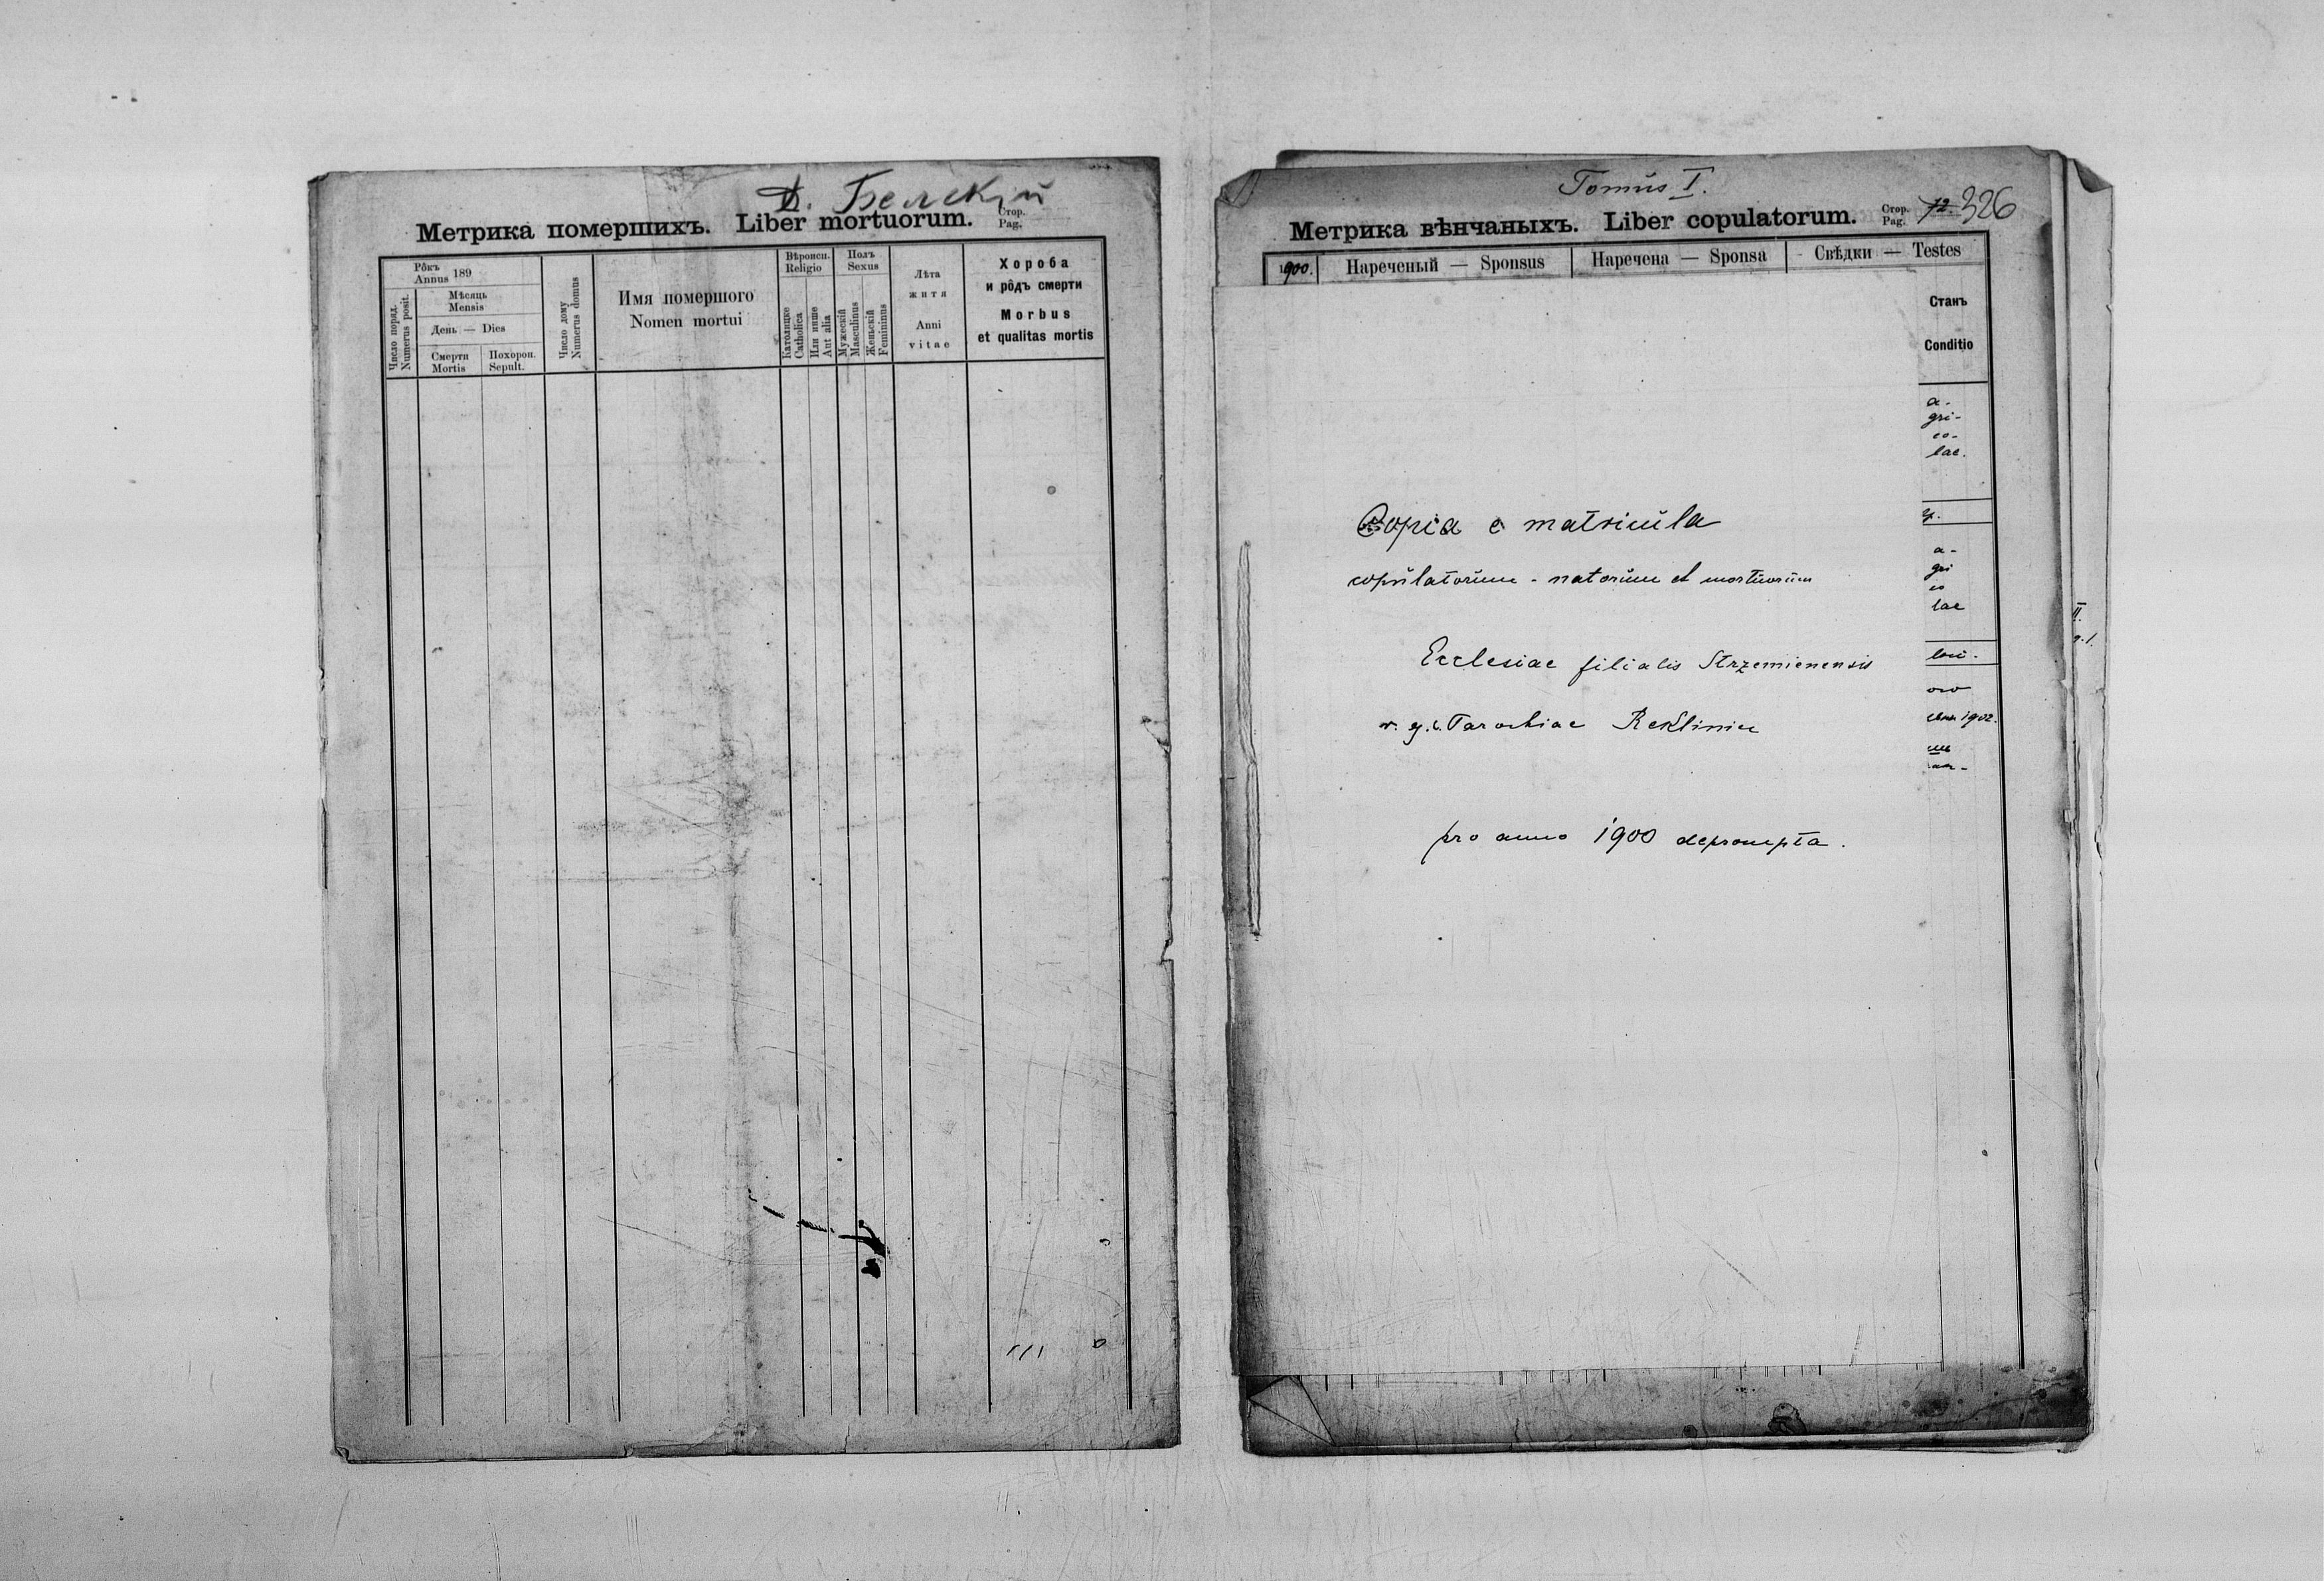 Д. Белский
Метрика помершихъ. Liber mortuorum. Стор. Pag.
Рôкъ Annus 189
Мѣсяць Mensis
День — Dies
Смерти Mortis
Похорон. Sepult.
Число поряд. Numerus posit.
Число дому Numerus domus
Имя помершого
Nomen mortui
Вѣроисп. Religio
Католицке Catholica
Или инше Aut alia
Полъ Sexus
Мужескій Masculinus
Женьскій Femininus
Лѣта
житя
Anni
vitae
Хороба
и рôдъ смерти
Morbus
et qualitas mortis
Tomus I.
Метрика вѣнчаныхъ. Liber copulatorum. Стор. Pag. 72 326
1900. Нареченый — Sponsus Наречена — Sponsa Свѣдки — Testes
Станъ
Conditio
a-
gri-
co-
lae.
Copia e matricula
copulatorum - natorum et mortuorum
a-
gri
co
lae
Ecclesiae filialis Strzemienensis
r. g. c. Parochiae Reklinie
1902.
pro anno 1900 deprompta.
II.